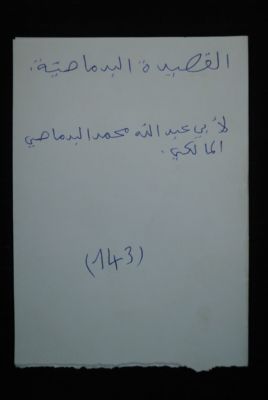 القصيدة البدماصية:
لأبي عبد الله محمد البدماصي
المالكي.
(143)